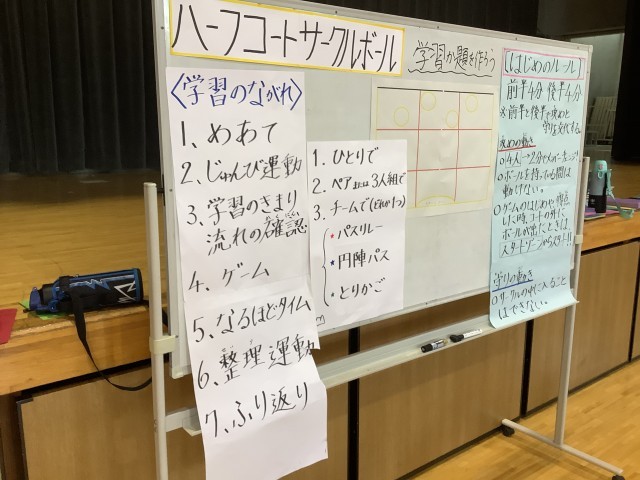 ハーフコートサークルボール
学習か題を作ろう
〈学習のながれ〉
1. めあて
2. じゅんび運動
3. 学習のきまり
流れの確認
4. ゲーム
5. なるほどタイム
6. 整理運動
7. ふり返り
1. ひとりで
2. ペアまたは3人組で
3. チームで(どれか1つ)
★パスリレー
★円陣パス
★とりかご
はじめのルール
前半4分 後半4分
※前半と後半で攻めと
守りを交代する。
攻めの動き
○ボールを持っている間は
動けない。
○ゲームのはじめや得点
ボールが出たときは、
スタートゾーンからスタート!!
守りの動き
○サークルの中に入ること
はできない。